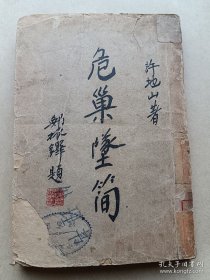 許地山著
危巢墜簡
鄭振鐸題
孔夫子旧书网